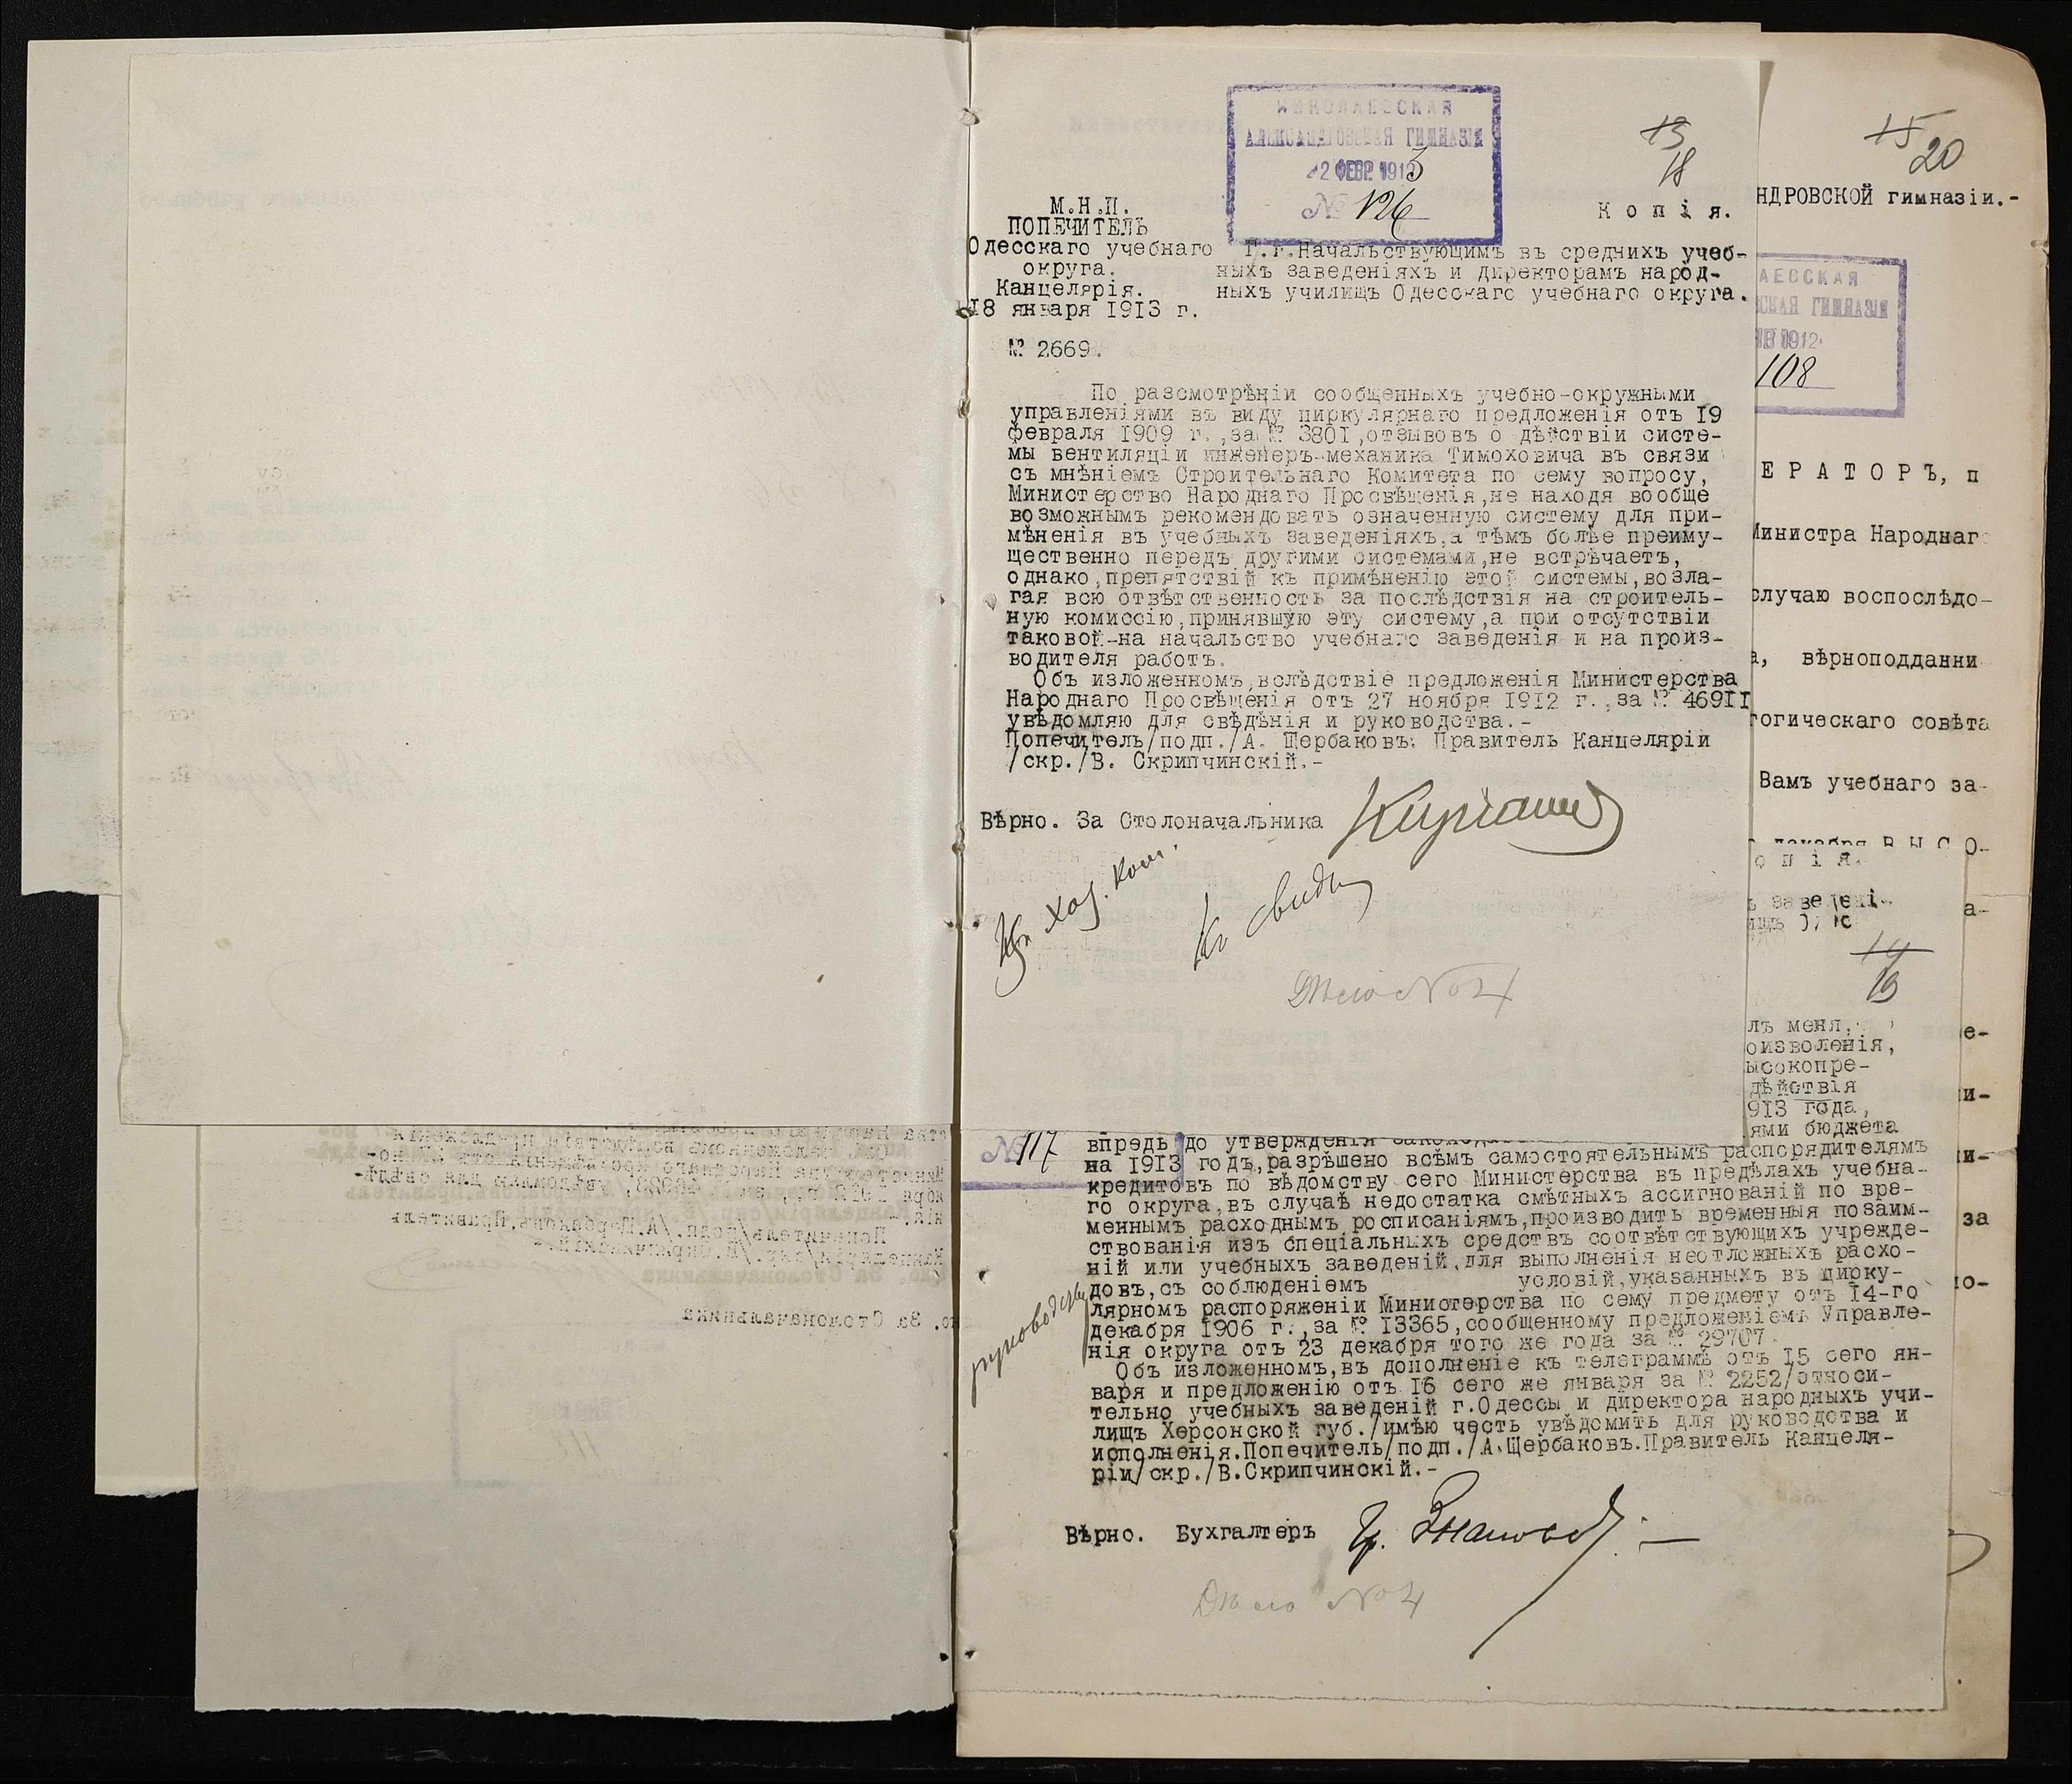 НИКОЛАЕВСКАЯ
АЛЕКСАНДРОВСКАЯ ГИМНАЗІЯ
2 ФЕВР. 1913
№ 126
13
18
М.Н.П.
ПОПЕЧИТЕЛЬ
Одесскаго учебнаго
округа.
Канцелярія.
18 января 1913 г.
№ 2669.
Копія.
Г.г.Начальствующимъ въ среднихъ учеб-
ныхъ заведеніяхъ и директорамъ народ-
ныхъ училищъ Одесскаго учебнаго округа.
По разсмотрѣніи сообщенныхъ учебно-окружными
управленіями въ виду циркулярнаго предложенія отъ 19
февраля 1909 г.,за № 3801,отзывовъ о дѣйствіи систе-
мы вентиляціи инженеръ-механика Тимоховича въ связи
съ мнѣніемъ Строительнаго Комитета по сему вопросу,
Министерство Народнаго Просвѣщенія,не находя вообще
возможнымъ рекомендовать означенную систему для при-
мѣненія въ учебныхъ заведеніяхъ,а тѣмъ болѣе преиму-
щественно передъ другими системами,не встрѣчаетъ,
однако,препятствій къ примѣненію этой системы,возла-
гая всю отвѣтственность за послѣдствія на строитель-
ную комиссію,принявшую эту систему,а при отсутствіи
таковой-на начальство учебнаго заведенія и на произ-
водителя работъ.
Объ изложенномъ,вслѣдствіе предложенія Министерства
Народнаго Просвѣщенія отъ 27 ноября 1912 г.,за № 46911
увѣдомляю для свѣдѣнія и руководства.-
Попечитель/подп./А. Щербаковъ. Правитель Канцеляріи
/скр./В. Скрипчинскій.-
Вѣрно. За Столоначальника
Хоз. Ком.
Дѣло № 4
15
20
НДРОВСКОЙ гимназіи.-
АЕВСКАЯ
СКАЯ ГИМНАЗІЯ
1912
108
ЕРАТОРЪ, п
Министра Народнаг
случаю воспослѣдо-
а, вѣрноподданни
гогическаго совѣта
Вамъ учебнаго за-
декабря ВЫСО-
опія.
ъ заведені-
14
19
лъ меня,
оизволенія,
ысокопре-
дѣйствія
913 года,
ями бюджета
№ 117
впредь до утвержденія
на 1913 годъ,разрѣшено всѣмъ самостоятельнымъ распорядителямъ
кредитовъ по вѣдомству сего Министерства въ предѣлахъ учебна-
го округа,въ случаѣ недостатка смѣтныхъ ассигнованій по вре-
меннымъ расходнымъ росписаніямъ,производить временныя позаим-
ствованія изъ спеціальныхъ средствъ соотвѣтствующихъ учрежде-
ній или учебныхъ заведеній,для выполненія неотложныхъ расхо-
довъ,съ соблюденіемъ условій,указанныхъ въ цирку-
лярномъ распоряженіи Министерства по сему предмету отъ 14-го
декабря 1906 г.,за № 13365,сообщенному предложеніемъ Управле-
нія округа отъ 23 декабря того же года за № 29707.
Объ изложенномъ,въ дополненіе къ телеграммѣ отъ 15 сего ян-
варя и предложенію отъ 16 сего же января за № 2252/относи-
тельно учебныхъ заведеній г.Одессы и директора народныхъ учи-
лищъ Херсонской губ./имѣю честь увѣдомить для руководства и
исполненія.Попечитель/подп./А.Щербаковъ.Правитель Канцеля-
ріи/скр./В.Скрипчинскій.-
Вѣрно. Бухгалтеръ
Дѣло № 4